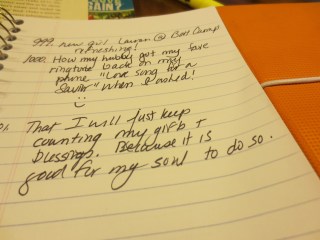 SAINT
999. new girl Lauren @ Boot Camp
refreshing!
1000. How my hubby got my fave
ringtone back on my
phone "Love song for a
Savior" when I asked!
That I will just keep
counting my gifts +
blessings. Because it is
good for my soul to do so.